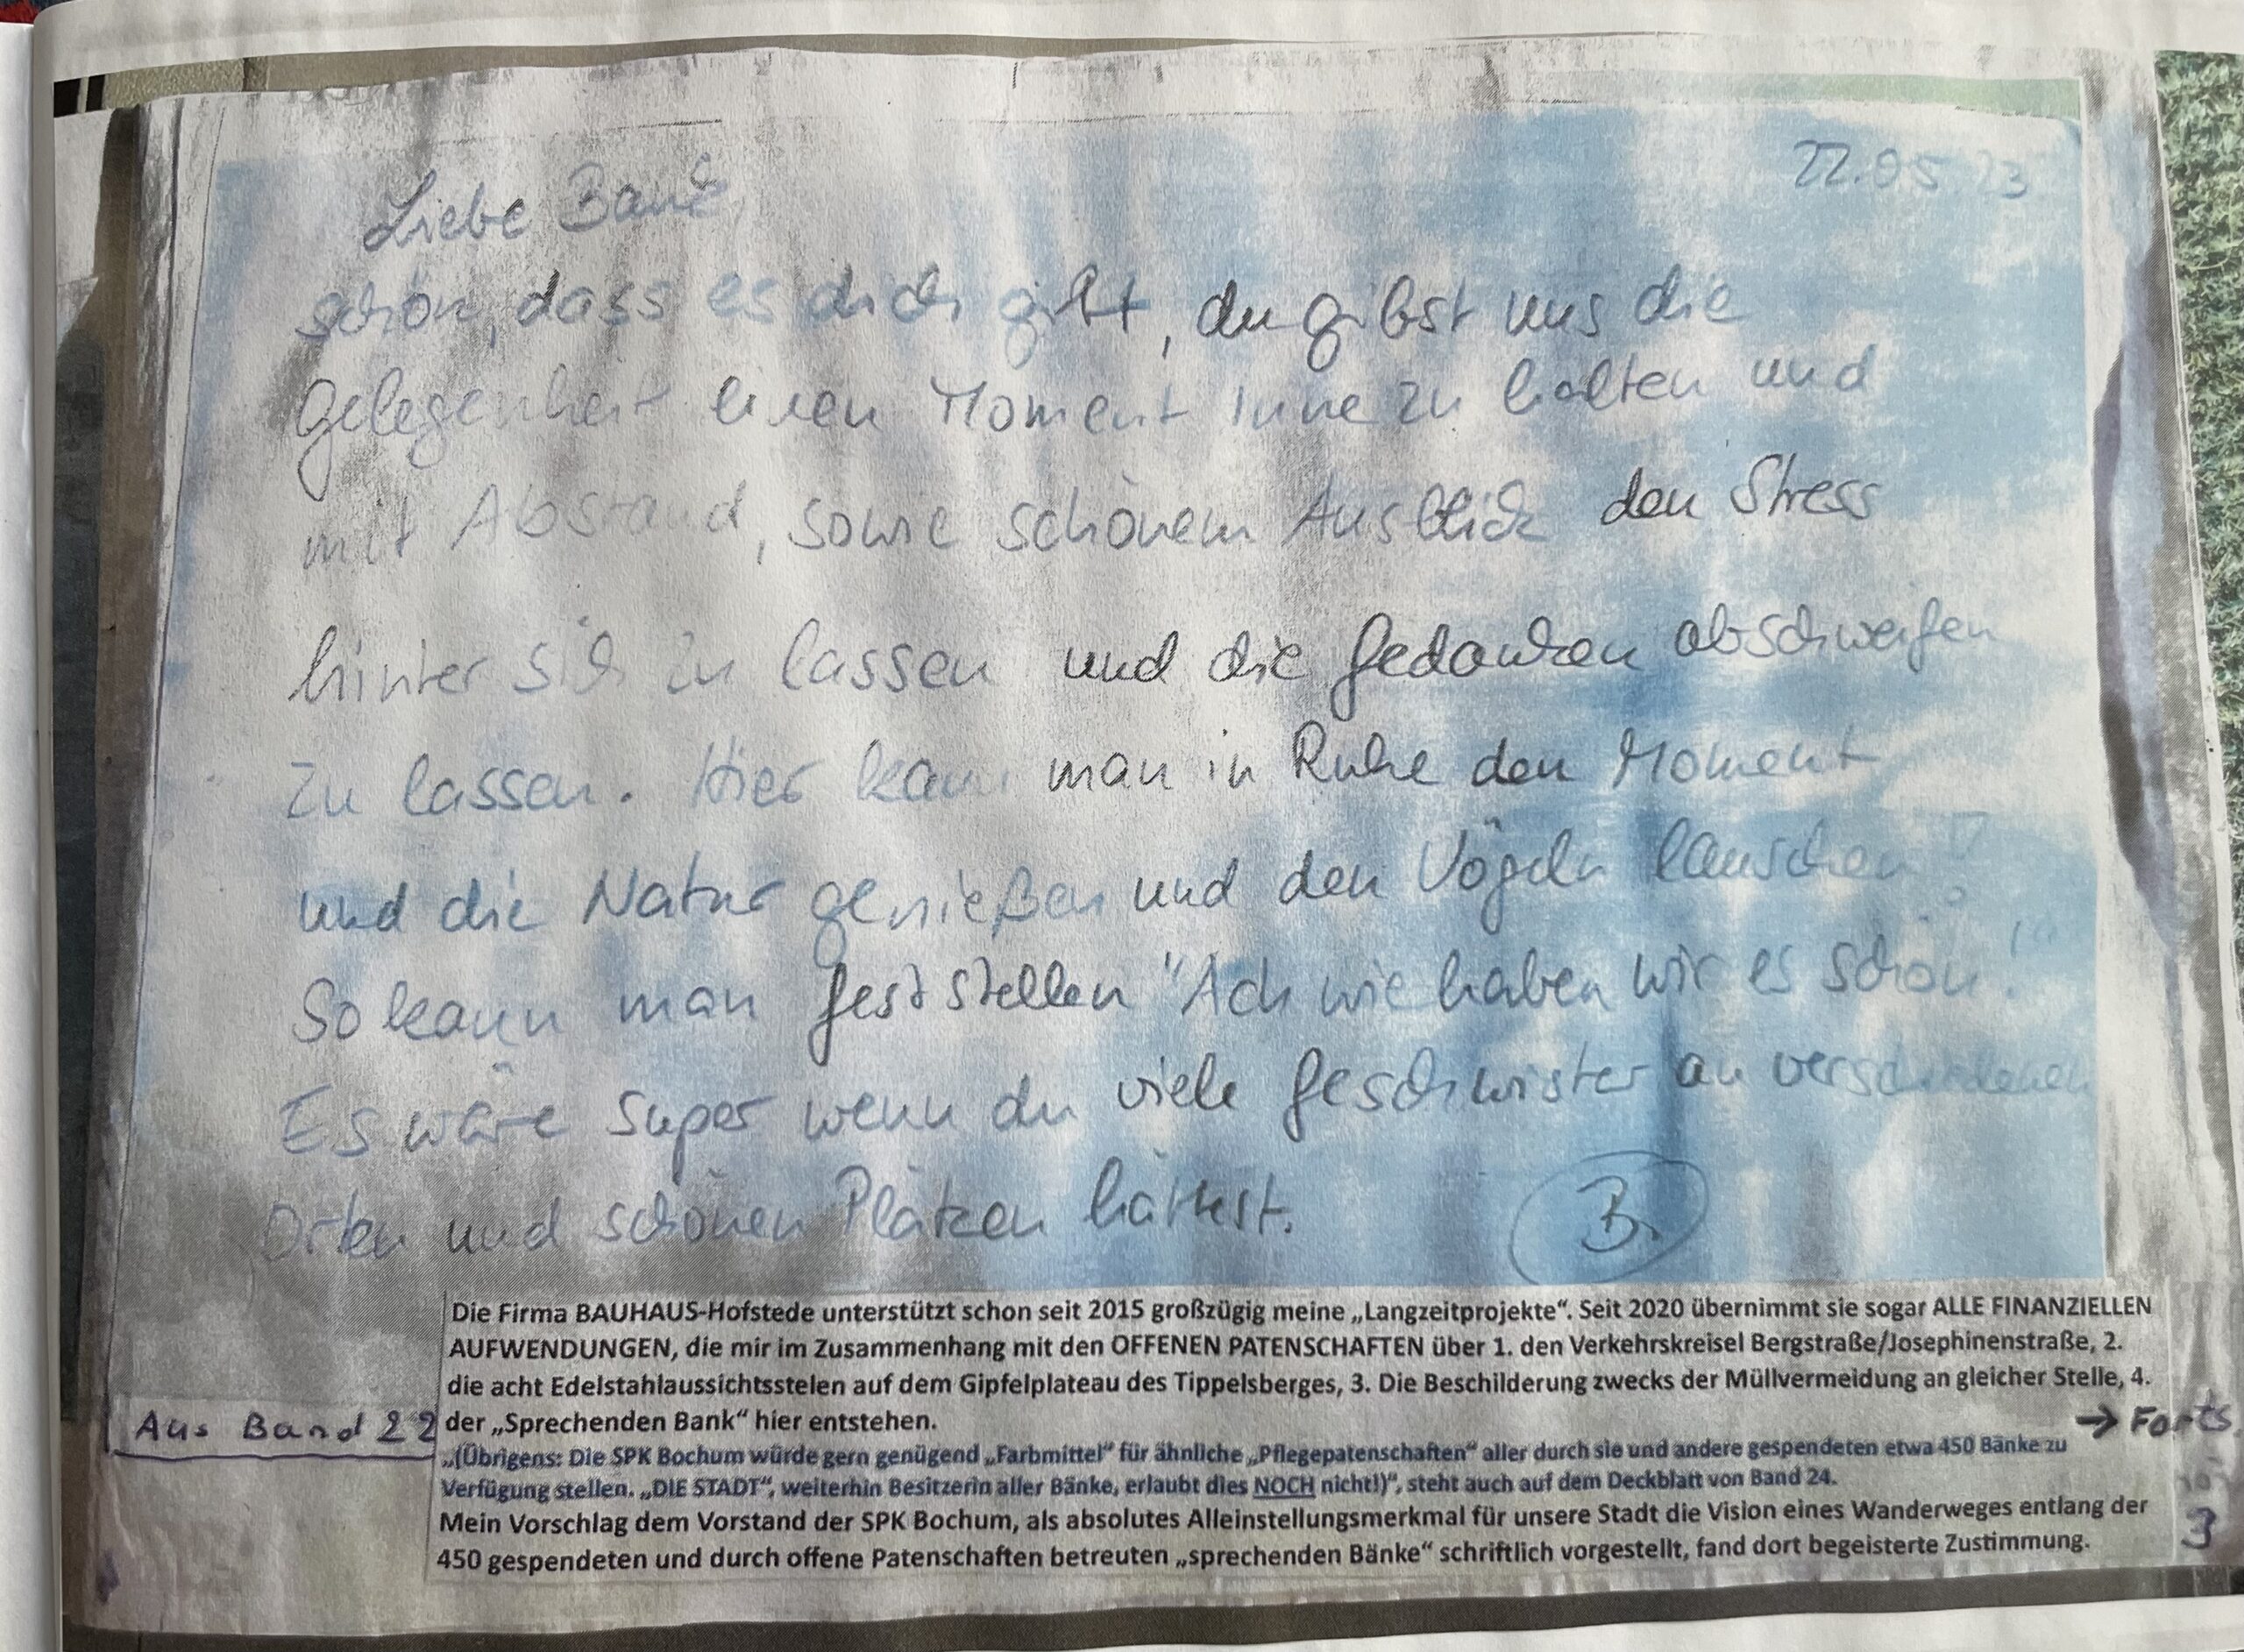 22.05.23
Liebe Bank,
schön, dass es dich gibt, du gibst uns die
Gelegenheit einen Moment Inne zu halten und
mit Abstand, sowie schönem Ausblick den Stress
hinter sich zu lassen und die Gedanken abschweifen
zu lassen. Hier kann man in Ruhe den Moment
und die Natur genießen und den Vögeln lauschen!
So kann man feststellen "Ach wie haben wir es schön!"
Es wäre super wenn du viele Geschwister an verschiedenen
Orten und schönen Plätzen hättest.
B.
Die Firma BAUHAUS-Hofstede unterstützt schon seit 2015 großzügig meine „Langzeitprojekte“. Seit 2020 übernimmt sie sogar ALLE FINANZIELLEN
AUFWENDUNGEN, die mir im Zusammenhang mit den OFFENEN PATENSCHAFTEN über 1. den Verkehrskreisel Bergstraße/Josephinenstraße, 2.
die acht Edelstahlaussichtsstelen auf dem Gipfelplateau des Tippelsberges, 3. Die Beschilderung zwecks der Müllvermeidung an gleicher Stelle, 4.
der „Sprechenden Bank“ hier entstehen.
Aus Band 22
→ Forts.
„(Übrigens: Die SPK Bochum würde gern genügend „Farbmittel“ für ähnliche „Pflegepatenschaften“ aller durch sie und andere gespendeten etwa 450 Bänke zu
Verfügung stellen. „DIE STADT“, weiterhin Besitzerin aller Bänke, erlaubt dies NOCH nicht!)“, steht auch auf dem Deckblatt von Band 24.
Mein Vorschlag dem Vorstand der SPK Bochum, als absolutes Alleinstellungsmerkmal für unsere Stadt die Vision eines Wanderweges entlang der
450 gespendeten und durch offene Patenschaften betreuten „sprechenden Bänke“ schriftlich vorgestellt, fand dort begeisterte Zustimmung.
3